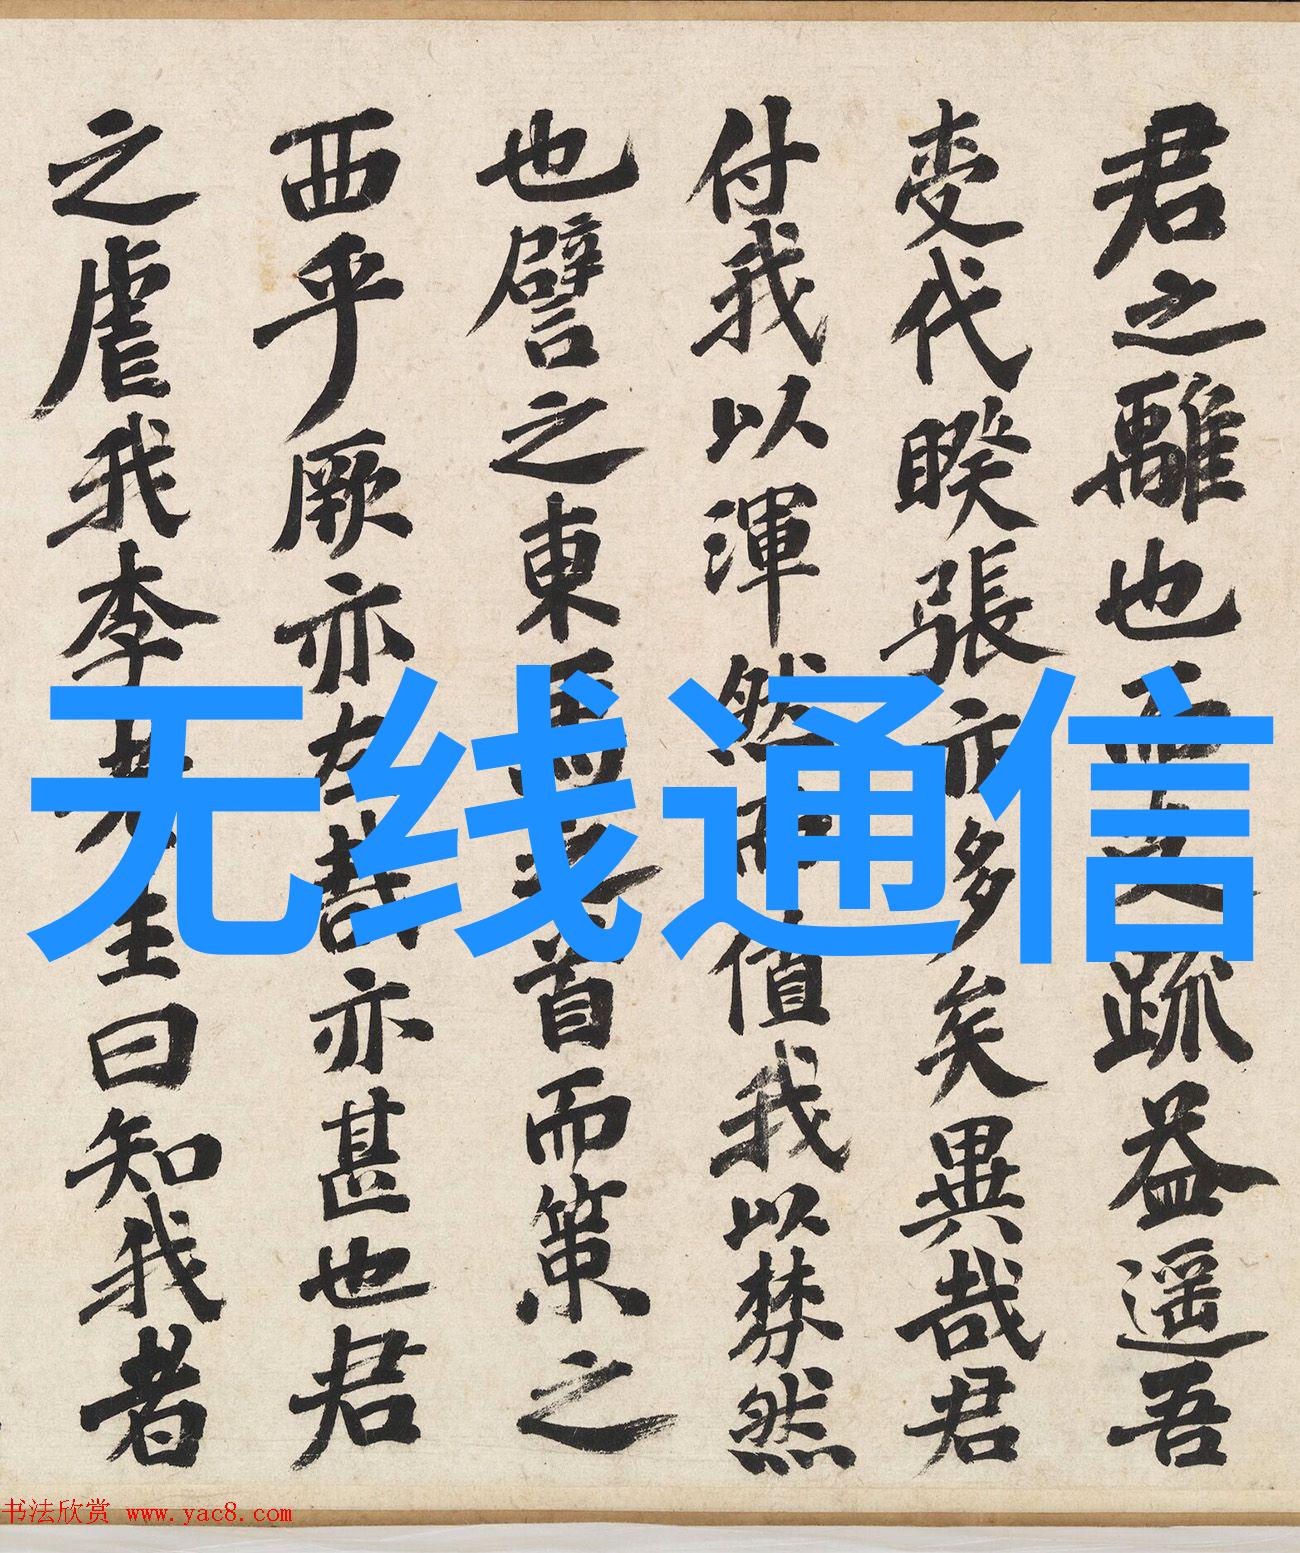 君之離也而又疏益遥吾
變代睽張亦多矣異哉君
付我以渾然而值我以棼然
也譬之東馬之首而策之
西乎厥亦左哉亦甚也君
之虐我李先生曰知我者
无线通信
书法欣赏 www.yac8.com